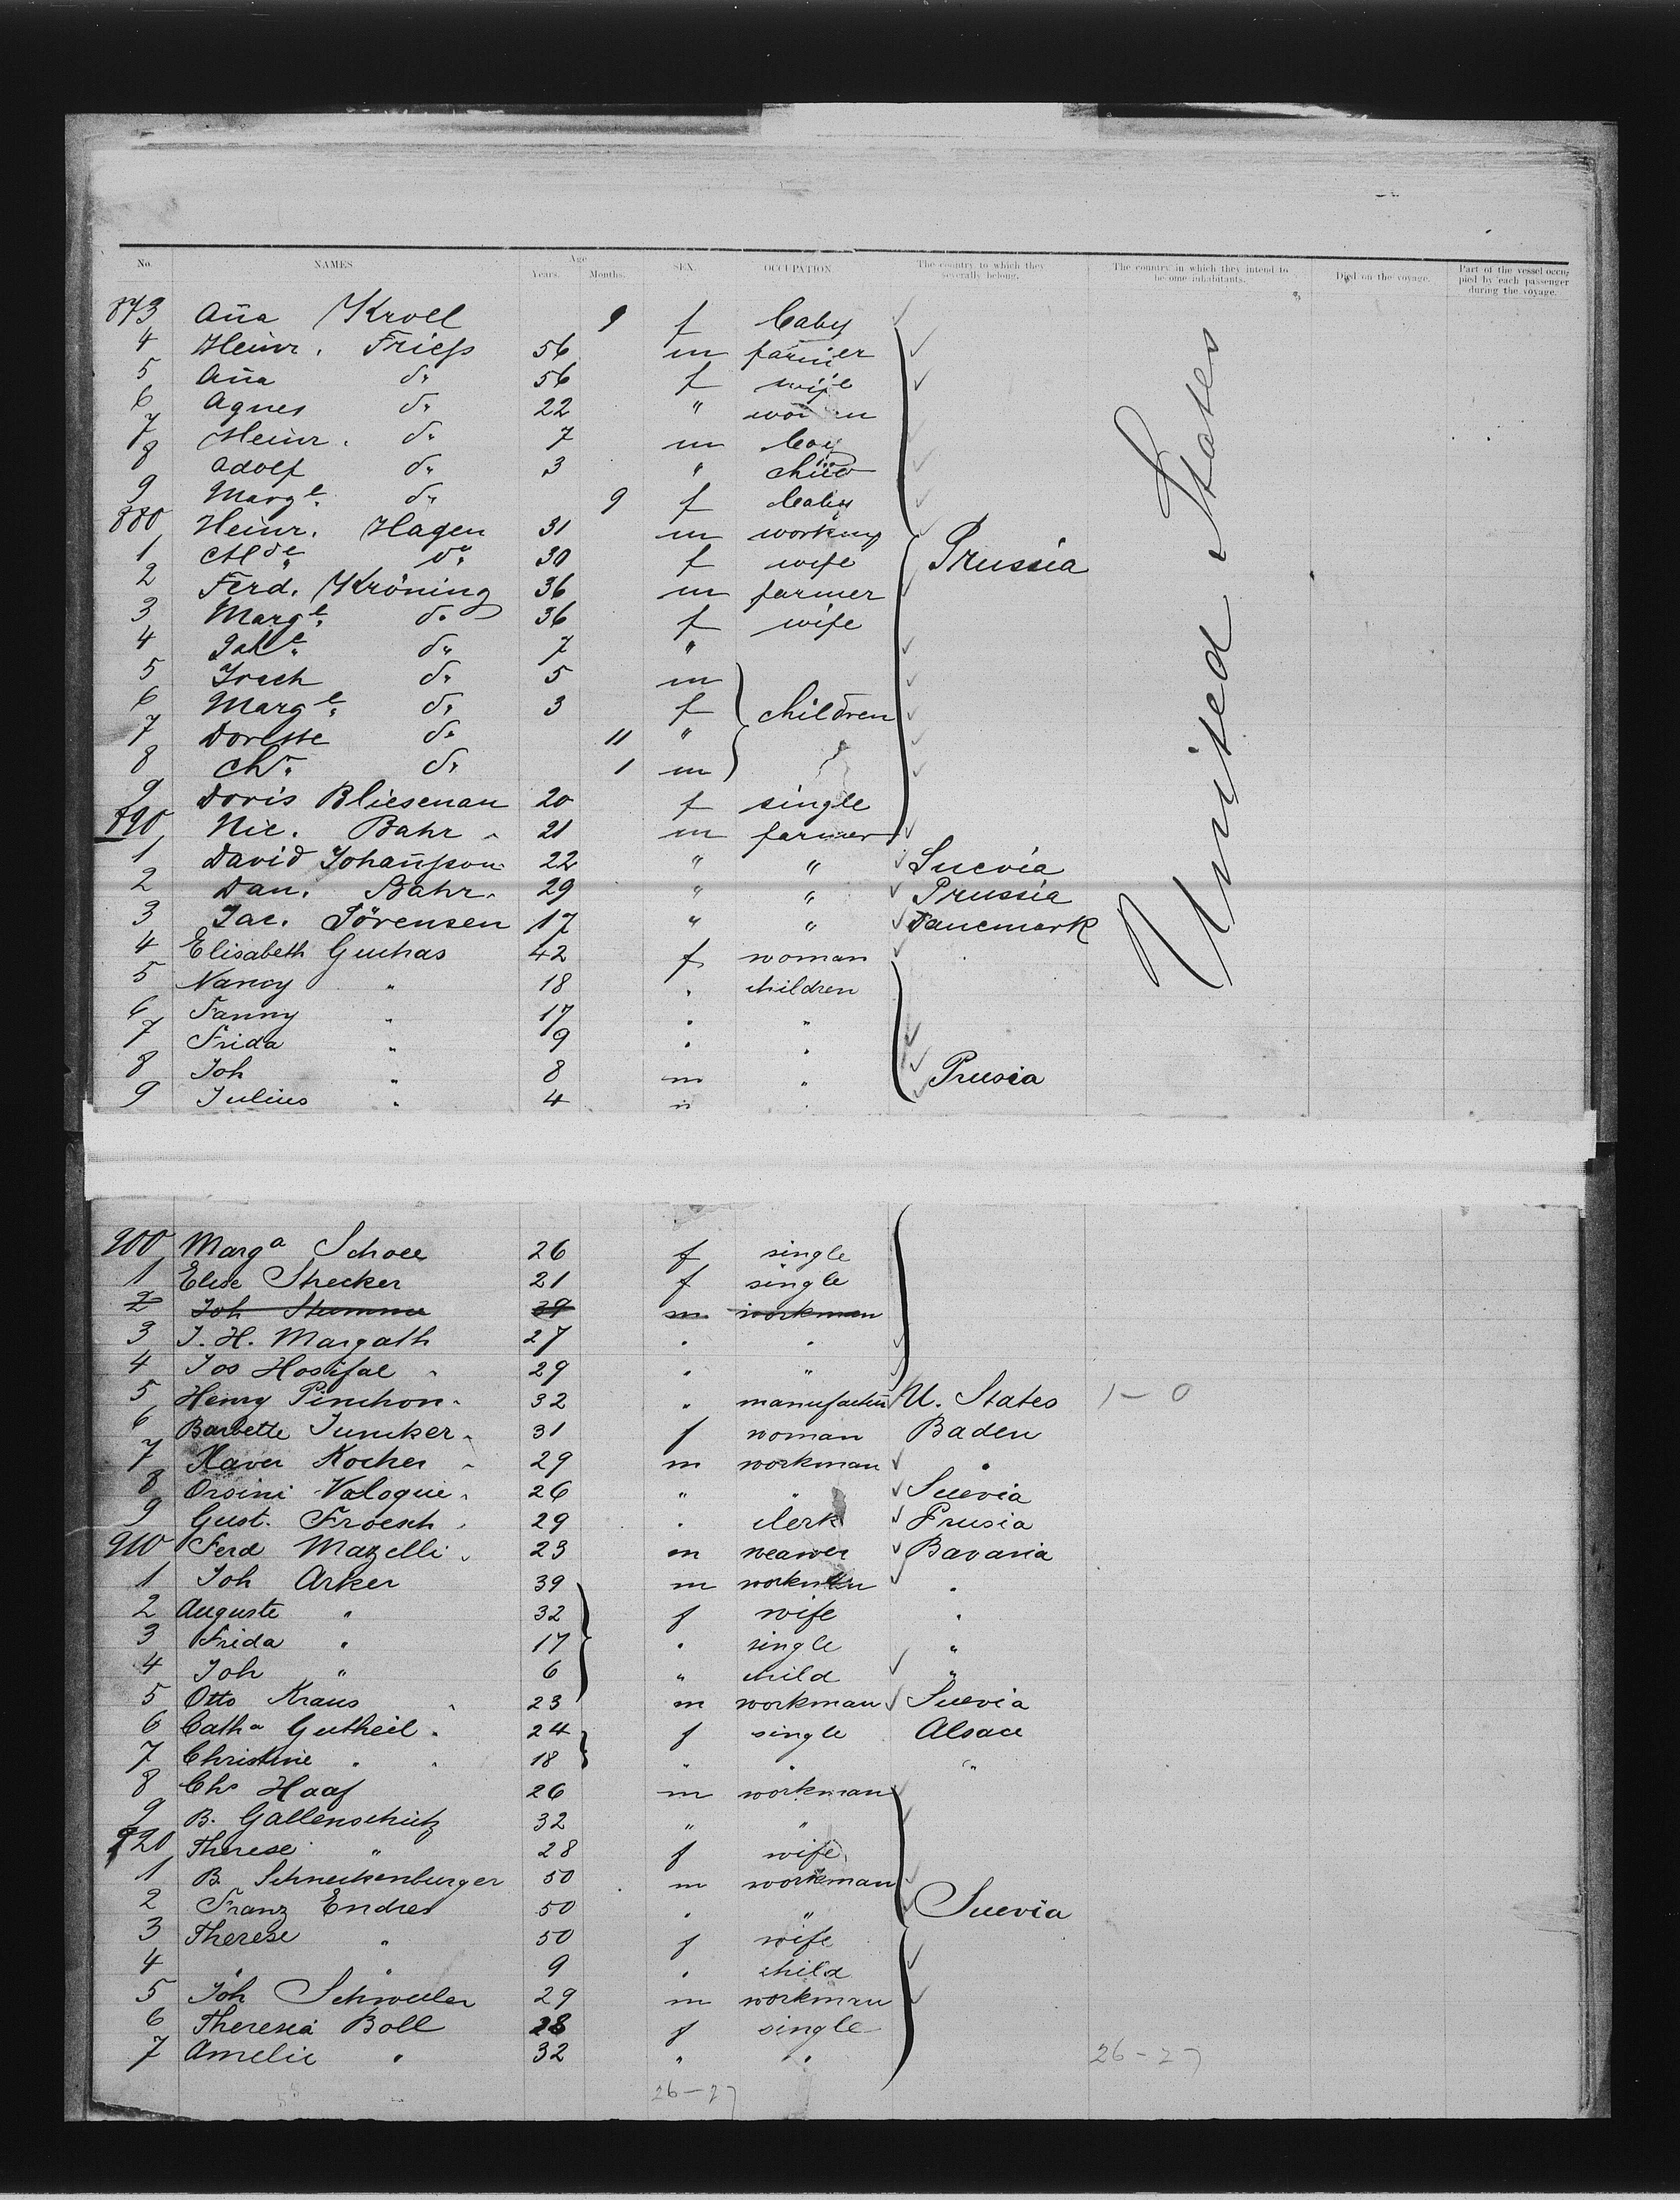 No. NAMES Age Years. Months. SEX. OCCUPATION The country to which they severally belong. The country in which they intend to become inhabitants. Died on the voyage. Part of the vessel occupied by each passenger during the voyage.
873 Aña Kroll 9 f baby
4 Heinr. Friess 56 m farmer
5 Aña do 56 f wife
6 Agnes do 22 "
7 Heinr. do 7 m boy
8 Adolf do 3 " child
9 Marg e do 9 f baby
880 Heinr. Hagen 31 m workmg
1 do 30 f wife Prussia
2 Ferd. Kröning 36 m farmer
3 Marg e do 36 f wife
4 Joh e do 7 "
5 do 5 m
6 Marg e do 3 f children
7 do 11 "
8 Chr. do 1 m
9 Doris Bliesenau 20 f single
890 Nic. Bahr 21 m farmer
1 David Johañsson 22 " " Suevia
2 Dan. Bahr 29 " " Prussia
3 Jac. Sörensen 17 " " Danemark
4 Elisabeth Guchas 42 f woman
5 Nancy " 18 " children
6 Fanny " 17 " "
7 Frida " 9 " "
8 Joh " 8 m " Prusia
9 Julius " 4 "
United States
900 Marg a Schoee 26 f single
1 Elise Strecker 21 f single
2 Joh Stumme 39 m workman
3 J. H. Margath 27 " "
4 Jos Hosifal 29 " "
5 Henry Pinchon 32 " manufactur U. States 1 — 0
6 Barbette Juncker 31 f woman Baden
7 Xaver Kocher 29 m workman "
8 Orsini Valoque 26 " " Suevia
9 Gust. Froesch 29 " clerk Prusia
910 Ferd Mazelli 23 m weawer Bavaria
1 Joh Arker 39 m workman "
2 Auguste " 32 f wife "
3 Frida " 17 " single "
4 Joh " 6 " child "
5 Otto Kraus 23 m workman Suevia
6 Cath a Gutheil 24 f single Alsace
7 Christine " 18 " " "
8 Chs Haaf 26 m workman
9 B. Gallenschütz 32 " "
920 Therese " 28 f wife
1 B. Schneckenburger 50 m workman
2 Franz Endres 50 " " Suevia
3 Therese " 50 f wife
4 " " 9 " child
5 Joh Schweiler 29 m workman
6 Theresia Boll 28 f single
7 Amelie " 32 " "
26 — 27
26 — 27